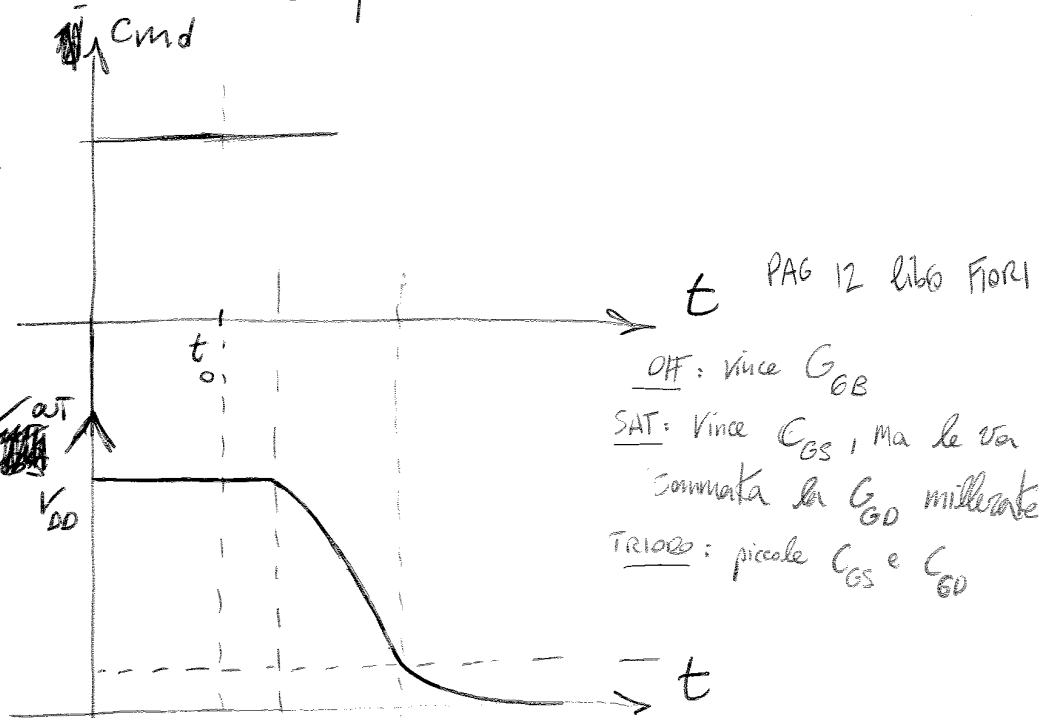 Cmd
PAG 12 libro FIORI
t
t0
OFF: vince CGB
SAT: Vince CGS, ma le va
sommata la CGD millerata
TRIODO: piccole CGS e CGD
VOUT
VDD
t